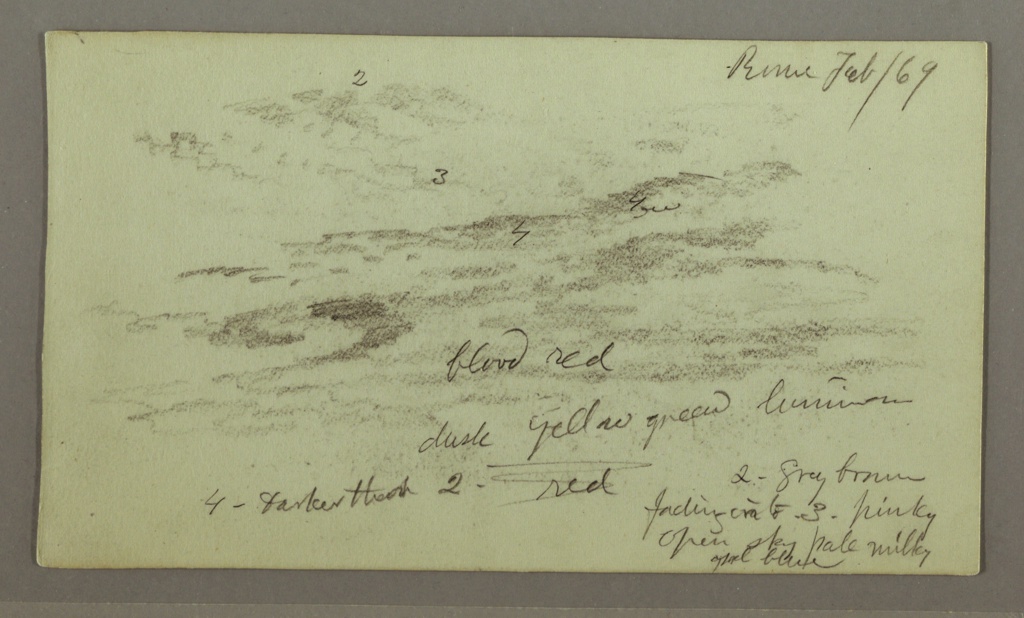 Rome Feb/69
2
3
4
blood red
dusk yellow green luminous
red
4 - darker than 2 -
2 - Grey brown
fading into 3 - pinky
open sky pale milky
opal blue